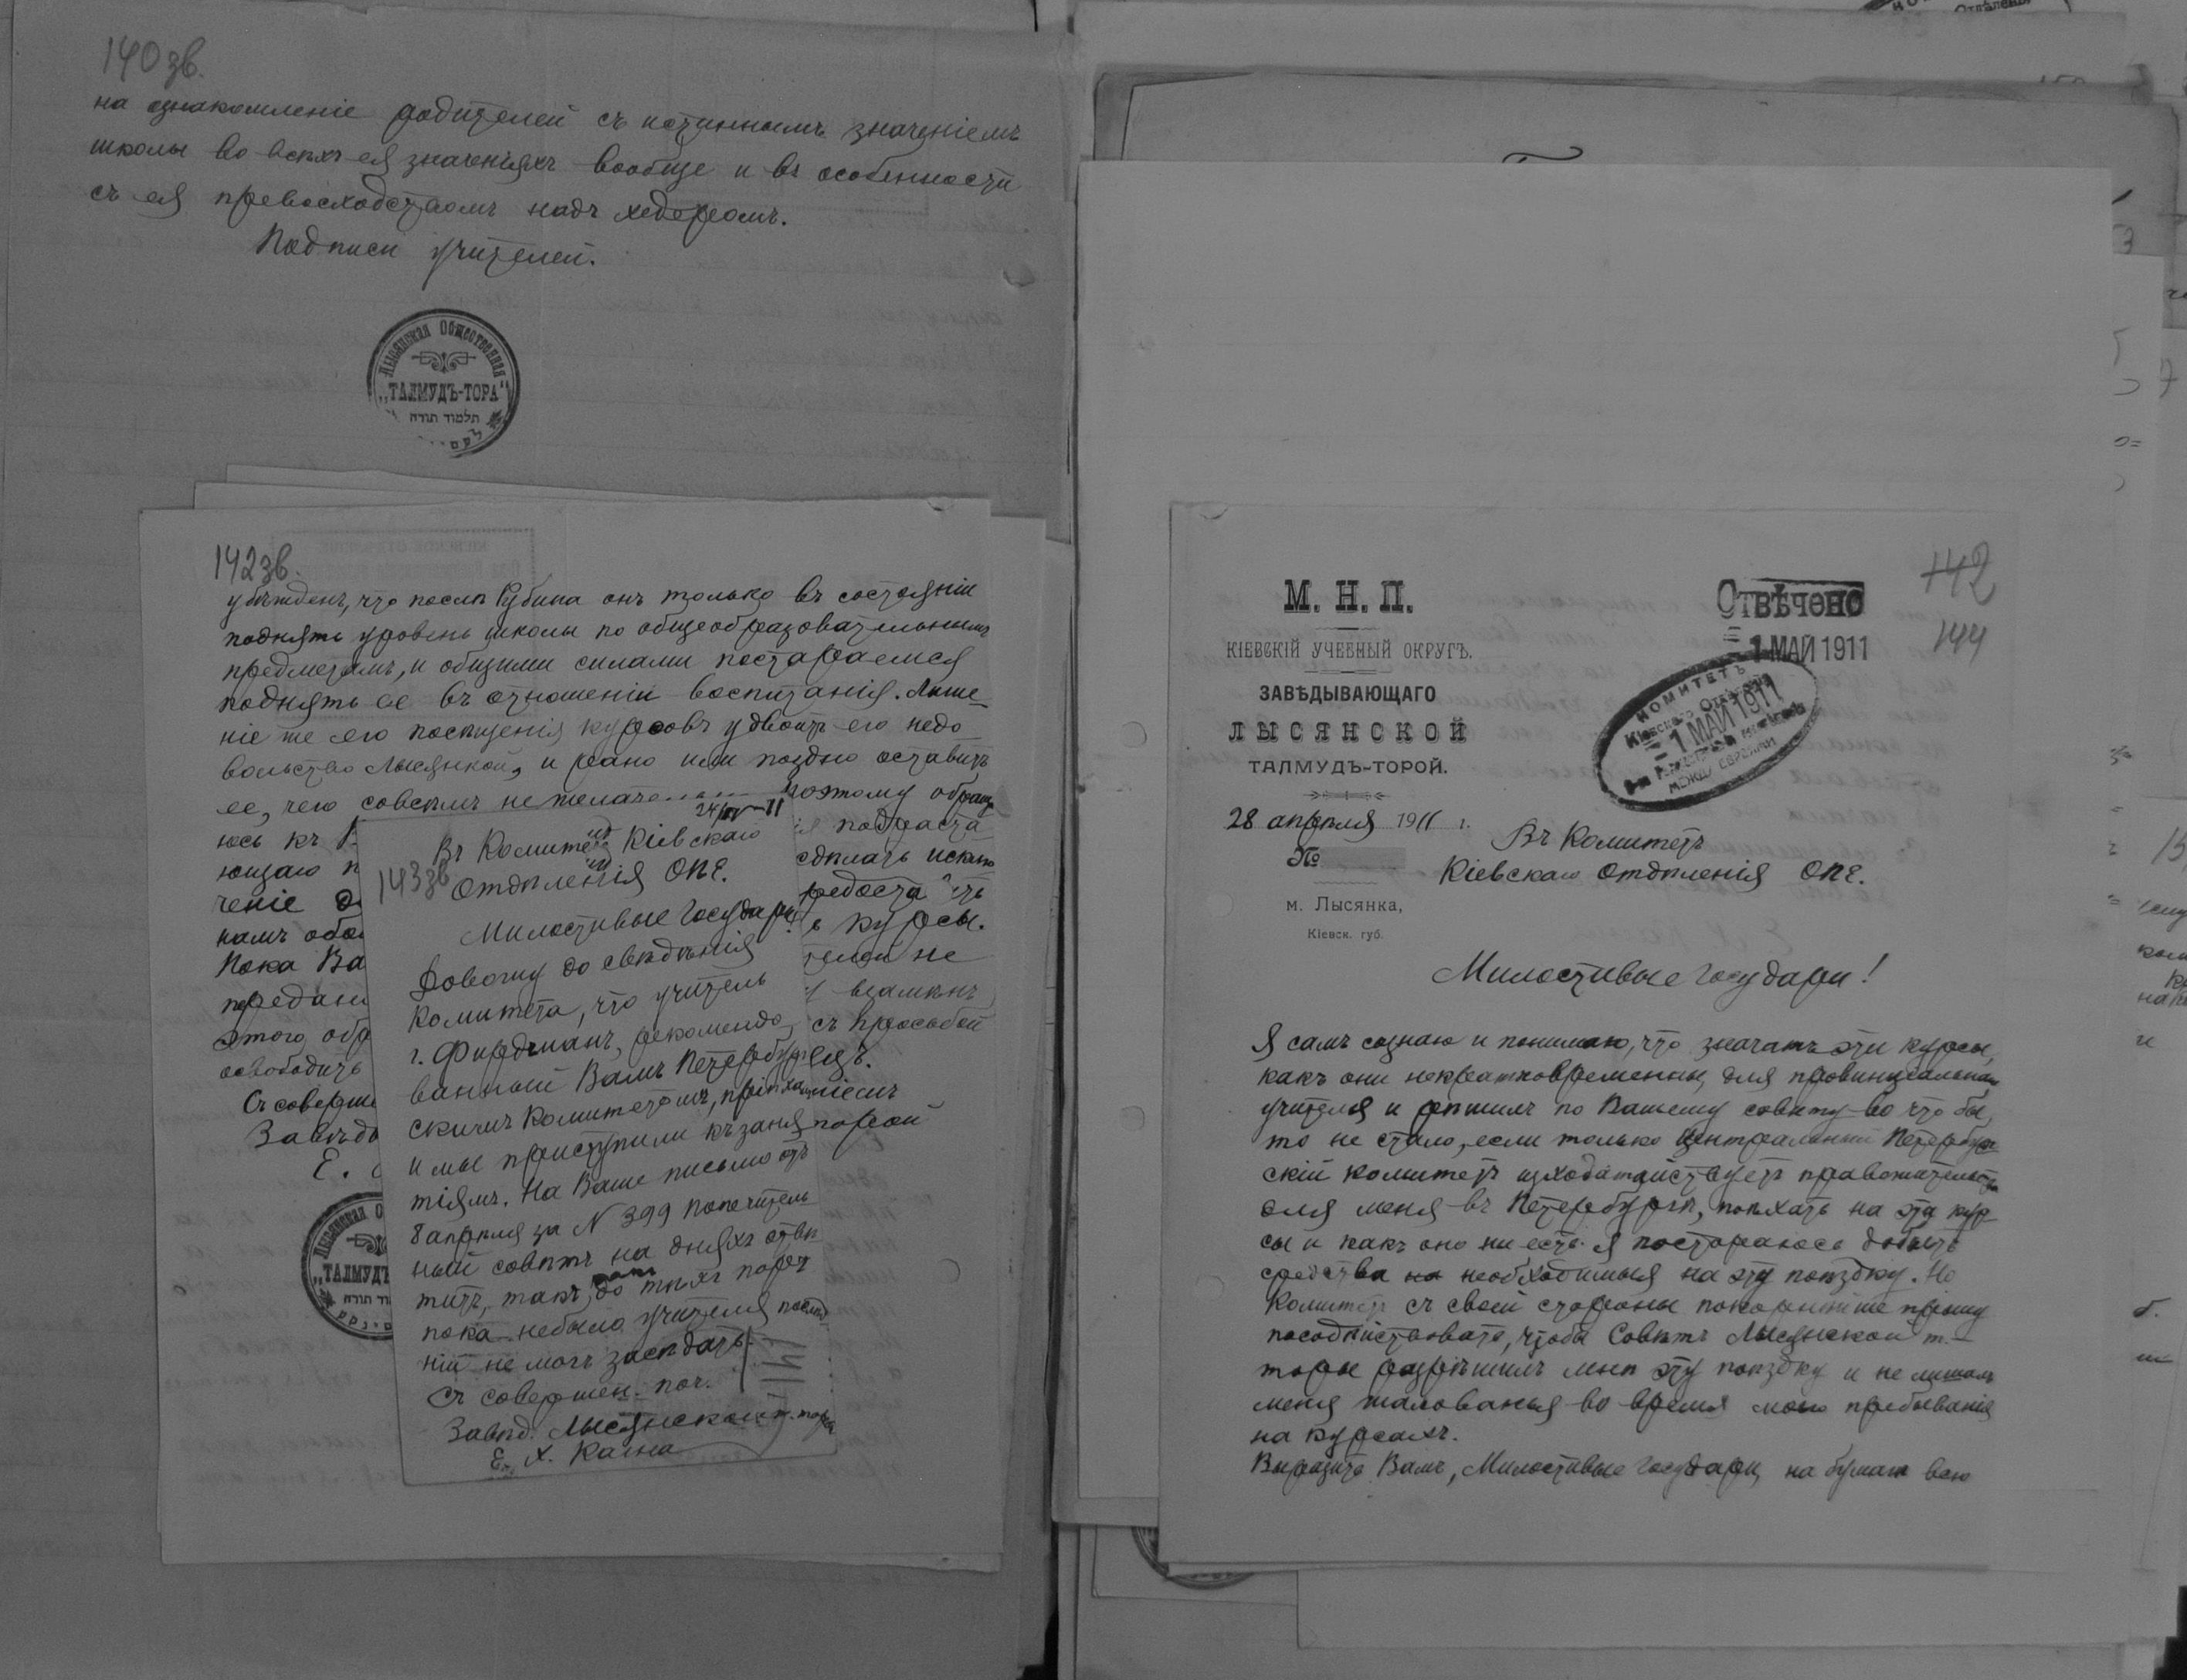 140 зв.
на ознакомленіе родителей съ истиннымъ значеніемъ
школы во всѣхъ ея значеніяхъ вообще и въ особенности
съ ея превосходствомъ надъ хедеромъ.
Подписи учителей.
Лысянская Общественная
„ТАЛМУДЪ-ТОРА“
תלמוד תורה
142 зв.
убѣжденъ, что послѣ Рубина онъ только въ состояніи
поднять уровень школы по общеобразовательнымъ
предметамъ, и общими силами постараемся
поднять ее въ отношеніи воспитанія. Лише-
ніе же его посѣщенія курсовъ удвоитъ его недо
вольство Лысянкой, и рано или поздно оставитъ
ее, чего совсѣмъ не желаю поэтому обраща
юсь къ
ющаго
ченіе
намъ
Пока Ва
передани
этого обр
освободить
Съ соверше
Завѣд
Е.
подраста
сдѣлать исклю
курсы.
не
взамѣнъ
съ просьбой
Лысянская
„ТАЛМУДЪ
תורה
24/IV-11
Въ Комитетъ Кіевскаго
143 зв
Отдѣленія ОПЕ.
Милостивые Государи!
Довожу до свѣдѣнія
Комитета, что учитель
г. Фирдманъ, рекомендо
ванный Вамъ Петербург
скимъ Комитетомъ, пріѣхалъ
и мы приступили къ заня
тіямъ. На Ваше письмо отъ
8 апрѣля за N 399 Попечитель
ный совѣтъ на дняхъ отвѣ
титъ, такъ какъ до тѣхъ поръ
пока не было учителя послѣд
ній не могъ засѣдать.
Съ совершен. поч.
Завѣд. Лысянской т. торы
Е. Х. Кагна
М. Н. П.
КІЕВСКІЙ УЧЕБНЫЙ ОКРУГЪ.
ЗАВѢДЫВАЮЩАГО
ЛЫСЯНСКОЙ
ТАЛМУДЪ-ТОРОЙ.
28 апрѣля 1911 г.
№
м. Лысянка,
Кіевск. губ.
Отвѣчено
1 МАЙ 1911
142
144
КОМИТЕТЪ
Кіевскаго Отдѣленія
1 МАЙ 1911
МЕЖДУ ЕВРЕЯМИ
Въ Комитетъ
Кіевскаго Отдѣленія ОПЕ.
Милостивые Государи!
Я самъ сознаю и понимаю, что значатъ эти курсы,
какъ они некратковременны, для провинціальнаго
учителя и рѣшилъ по Вашему совѣту во что бы
то не стало, если только Центральный Петербург
скій комитетъ изходатайствуетъ правожительство
для меня въ Петербургѣ, поѣхать на эта кур
сы и какъ оно ни есть я постараюсь добыть
средства на необходимыя на эту поѣздку. Но
Комитетъ съ своей стороны покорнѣйше прошу
посодѣйствовать, чтобы Совѣтъ Лысянской т.-
торы разрѣшилъ мнѣ эту поѣздку и не лишалъ
меня жалованья во время моего пребыванія
на курсахъ.
Выразить Вамъ, Милостивые Государи, на бумагѣ всю